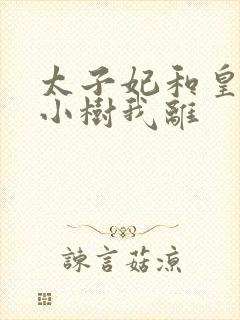 太子妃和皇
小樹我離
諫言菇涼